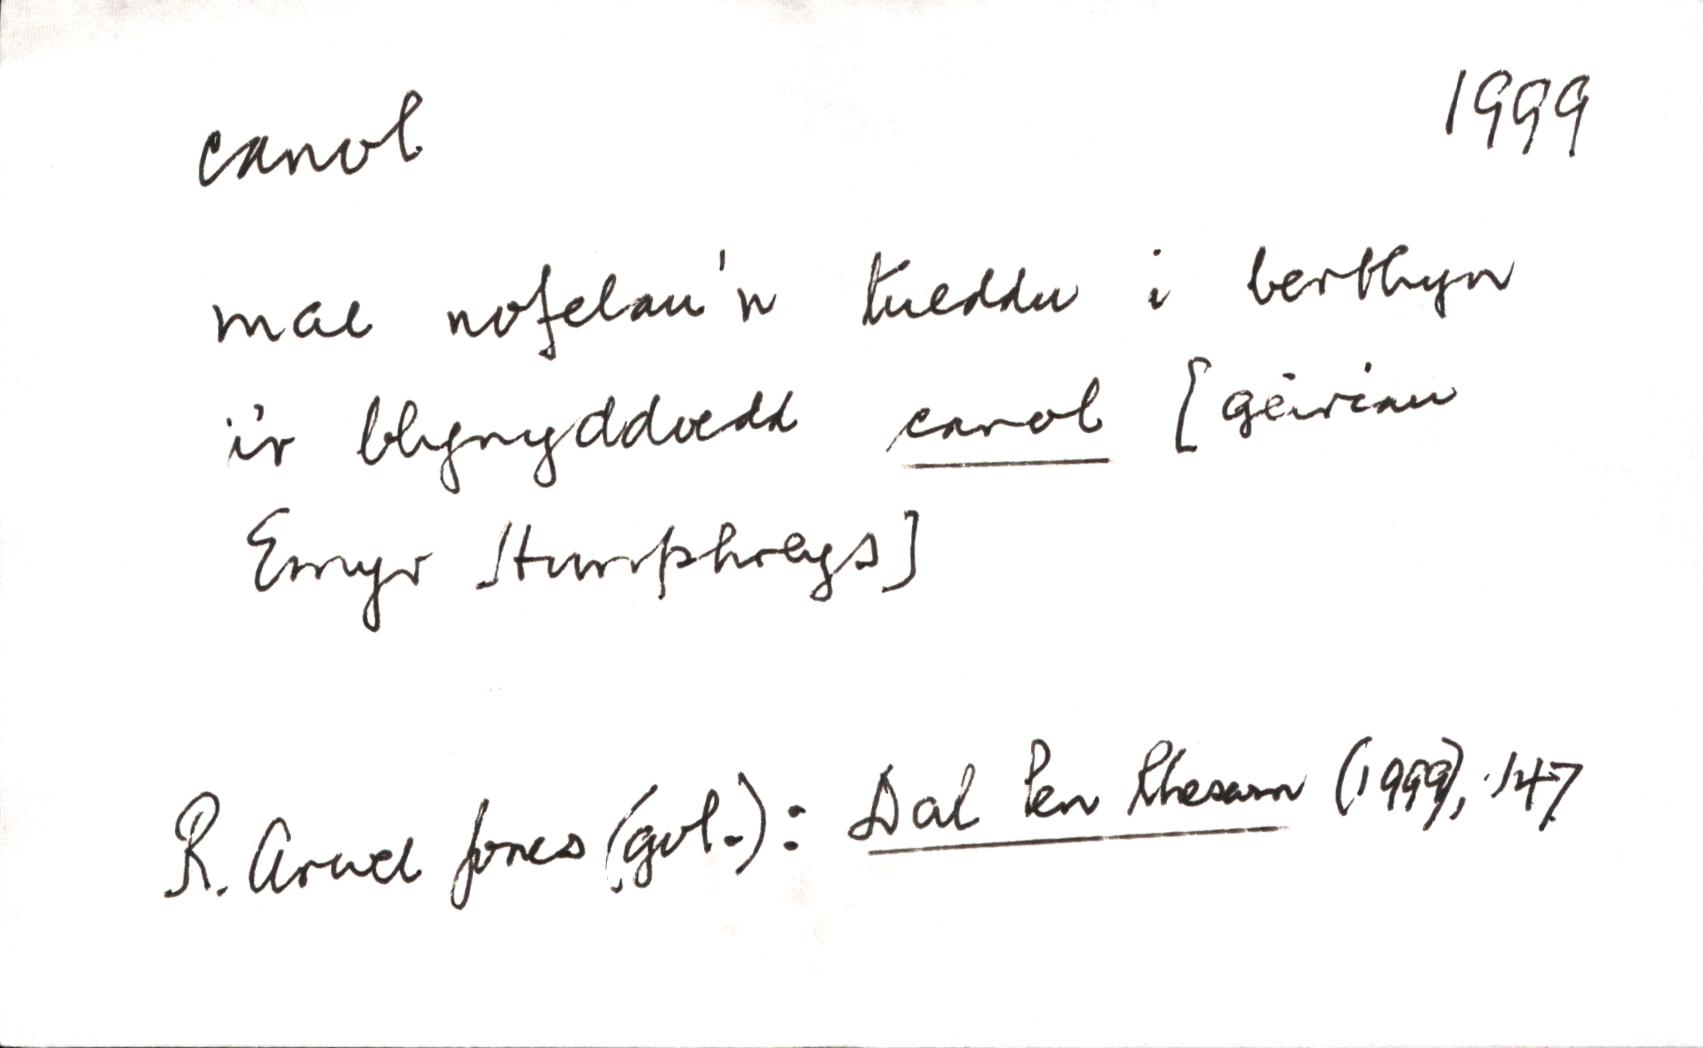 canol 1999
mae nofelau'n tueddu i berthyn
i'r blynyddoedd canol [geiriau
Emyr Humphreys]
R. Arwel Jones (gol.): Dal Pen Rheswm (1999), 147